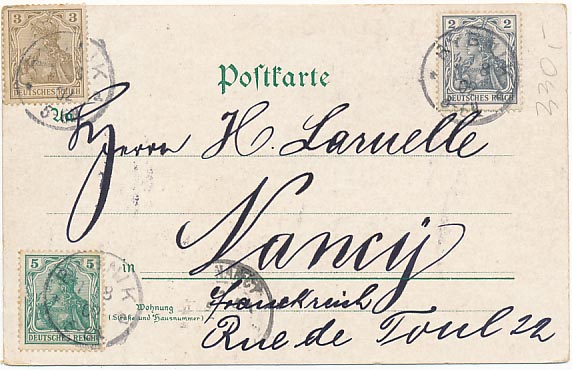 3
DEUTSCHES REICH
2
DEUTSCHES REICH
RYBNIK
Postkarte
330,-
An
Herrn H. Laruelle
Nancy
in
5
DEUTSCHES REICH
NANCY
Wohnung
(Straße und Hausnummer)
Frankreich
Rue de Toul 22